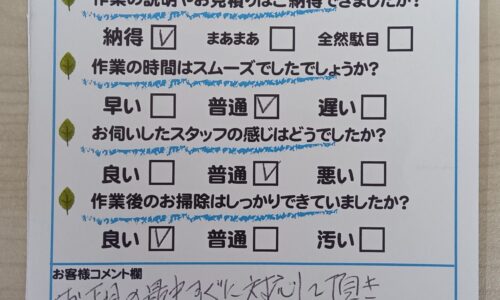 作業の説明やお見積りはご納得できましたか?
納得 ☑ まあまあ □ 全然駄目 □
作業の時間はスムーズでしたでしょうか?
早い □ 普通 ☑ 遅い □
お伺いしたスタッフの感じはどうでしたか?
良い □ 普通 ☑ 悪い □
作業後のお掃除はしっかりできていましたか?
良い ☑ 普通 □ 汚い □
お客様コメント欄
お正月の最中すぐに対応して頂き